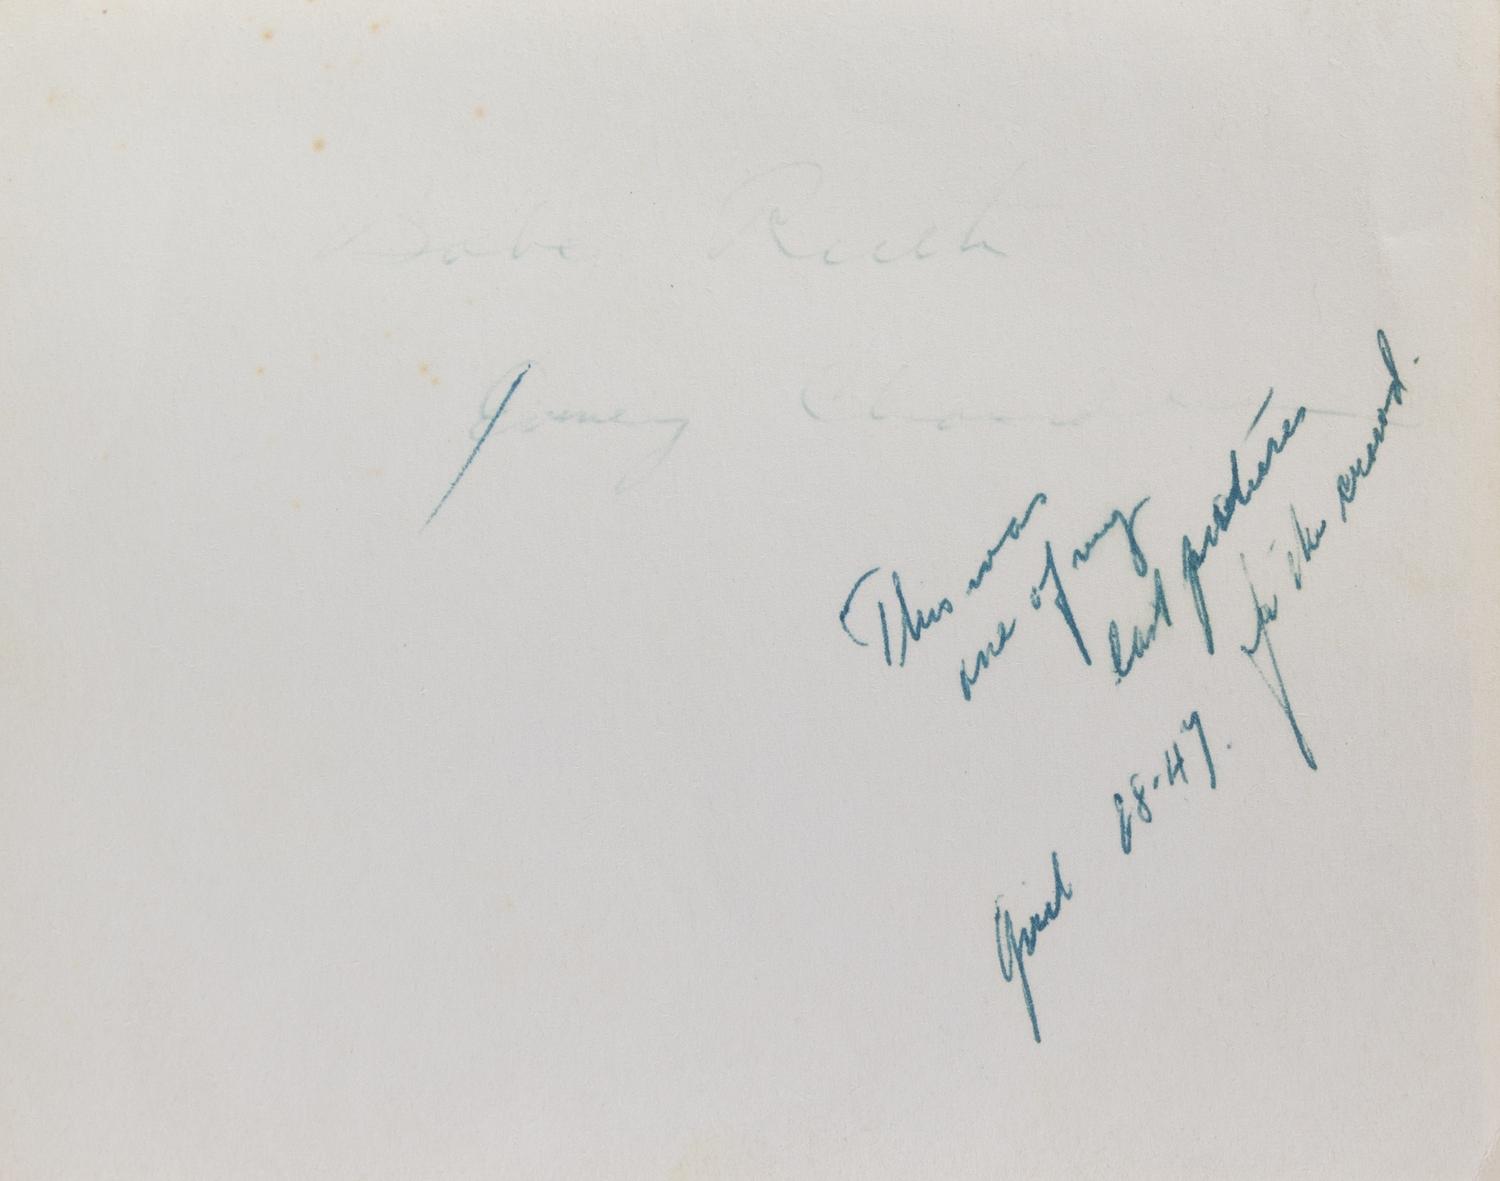 Babe Ruth
This was
one of my
last pictures
for the crowd.
April 28-47.